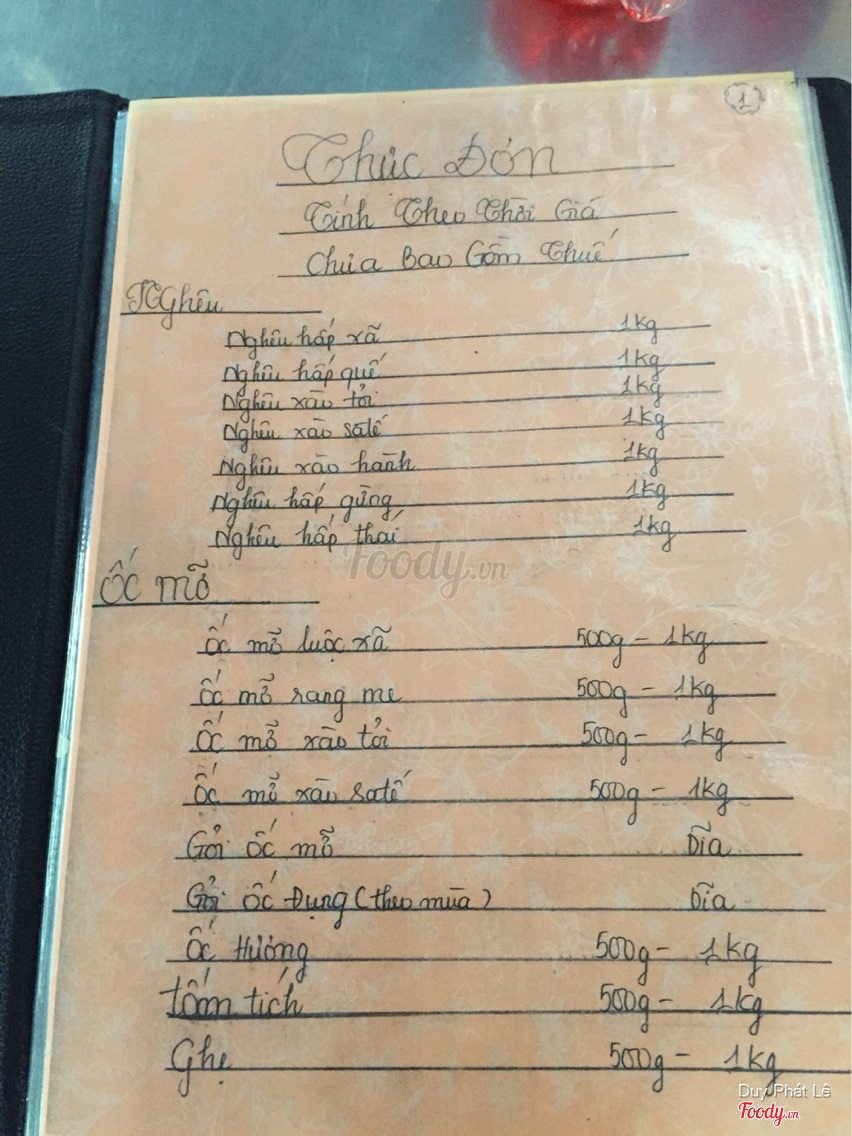 1
Thức Đơn
Tính Theo Thời Giá
Chưa Bao Gồm Thuế
Nghêu
Nghêu hấp xã 1kg
Nghêu hấp quế 1kg
Nghêu xào tỏi 1kg
Nghêu xào satế 1kg
Nghêu xào hành 1kg
Nghêu hấp gừng 1kg
Nghêu hấp thái 1kg
Foody.vn
Ốc mỡ
Ốc mỡ luộc xã 500g - 1kg
Ốc mỡ rang me 500g - 1kg
Ốc mỡ xào tỏi 500g - 1kg
Ốc mỡ xào satế 500g - 1kg
Gỏi ốc mỡ Dĩa
Gỏi ốc Đụng (theo mùa) Dĩa
Ốc Hương 500g - 1kg
tốm tích 500g - 1kg
Ghẹ 500g - 1kg
Duy Phát Lê
Foody.vn